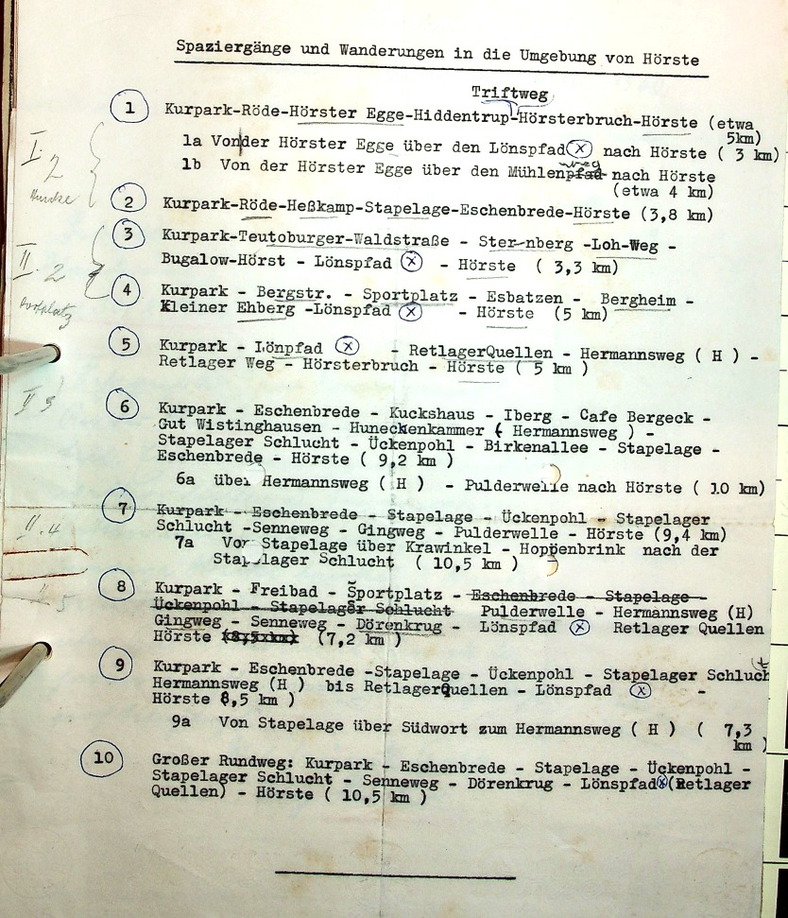 Spaziergänge und Wanderungen in die Umgebung von Hörste
Triftweg
1 Kurpark-Röde-Hörster Egge-Hiddentrup-Hörsterbruch-Hörste (etwa 5km)
1a Von der Hörster Egge über den Lönspfad (X) nach Hörste ( 3 km)
1b Von der Hörster Egge über den Mühlenpfad weg nach Hörste
(etwa 4 km)
I 2
2 Kurpark-Röde-Heßkamp-Stapelage-Eschenbrede-Hörste (3,8 km)
3 Kurpark-Teutoburger-Waldstraße - Sternberg -Loh-Weg -
Bugalow-Hörst - Lönspfad (X) - Hörste ( 3,3 km)
II. 2
4 Kurpark - Bergstr. - Sportplatz - Esbatzen - Bergheim -
Kleiner Ehberg -Lönspfad (X) - Hörste (5 km)
5 Kurpark - Lönpfad (X) - RetlagerQuellen - Hermannsweg ( H ) -
Retlager Weg - Hörsterbruch - Hörste ( 5 km )
II 3
6 Kurpark - Eschenbrede - Kuckshaus - Iberg - Cafe Bergeck -
Gut Wistinghausen - Huneckenkammer ( Hermannsweg ) -
Stapelager Schlucht - Ückenpohl - Birkenallee - Stapelage -
Eschenbrede - Hörste ( 9,2 km )
6a über Hermannsweg ( H ) - Pulderwelle nach Hörste ( 10 km)
II. 4
7 Kurpark - Eschenbrede - Stapelage - Ückenpohl - Stapelager
Schlucht -Senneweg - Gingweg - Pulderwelle - Hörste (9,4 km)
7a Vor Stapelage über Krawinkel - Hoppenbrink nach der
Stapelager Schlucht ( 10,5 km )
5
8 Kurpark - Freibad - Sportplatz - Eschenbrede - Stapelage -
Ückenpohl - Stapelager Schlucht Pulderwelle - Hermannsweg (H)
Gingweg - Senneweg - Dörenkrug - Lönspfad (X) Retlager Quellen
Hörste (8,5 km) (7,2 km )
9 Kurpark - Eschenbrede -Stapelage - Ückenpohl - Stapelager Schlucht
Hermannsweg (H ) bis RetlagerQuellen - Lönspfad (X) -
Hörste 8,5 km )
9a Von Stapelage über Südwort zum Hermannsweg ( H ) ( 7,3 km )
10 Großer Rundweg: Kurpark - Eschenbrede - Stapelage - Ückenpohl -
Stapelager Schlucht - Senneweg - Dörenkrug - Lönspfad (X) (Retlager
Quellen) - Hörste ( 10,5 km )